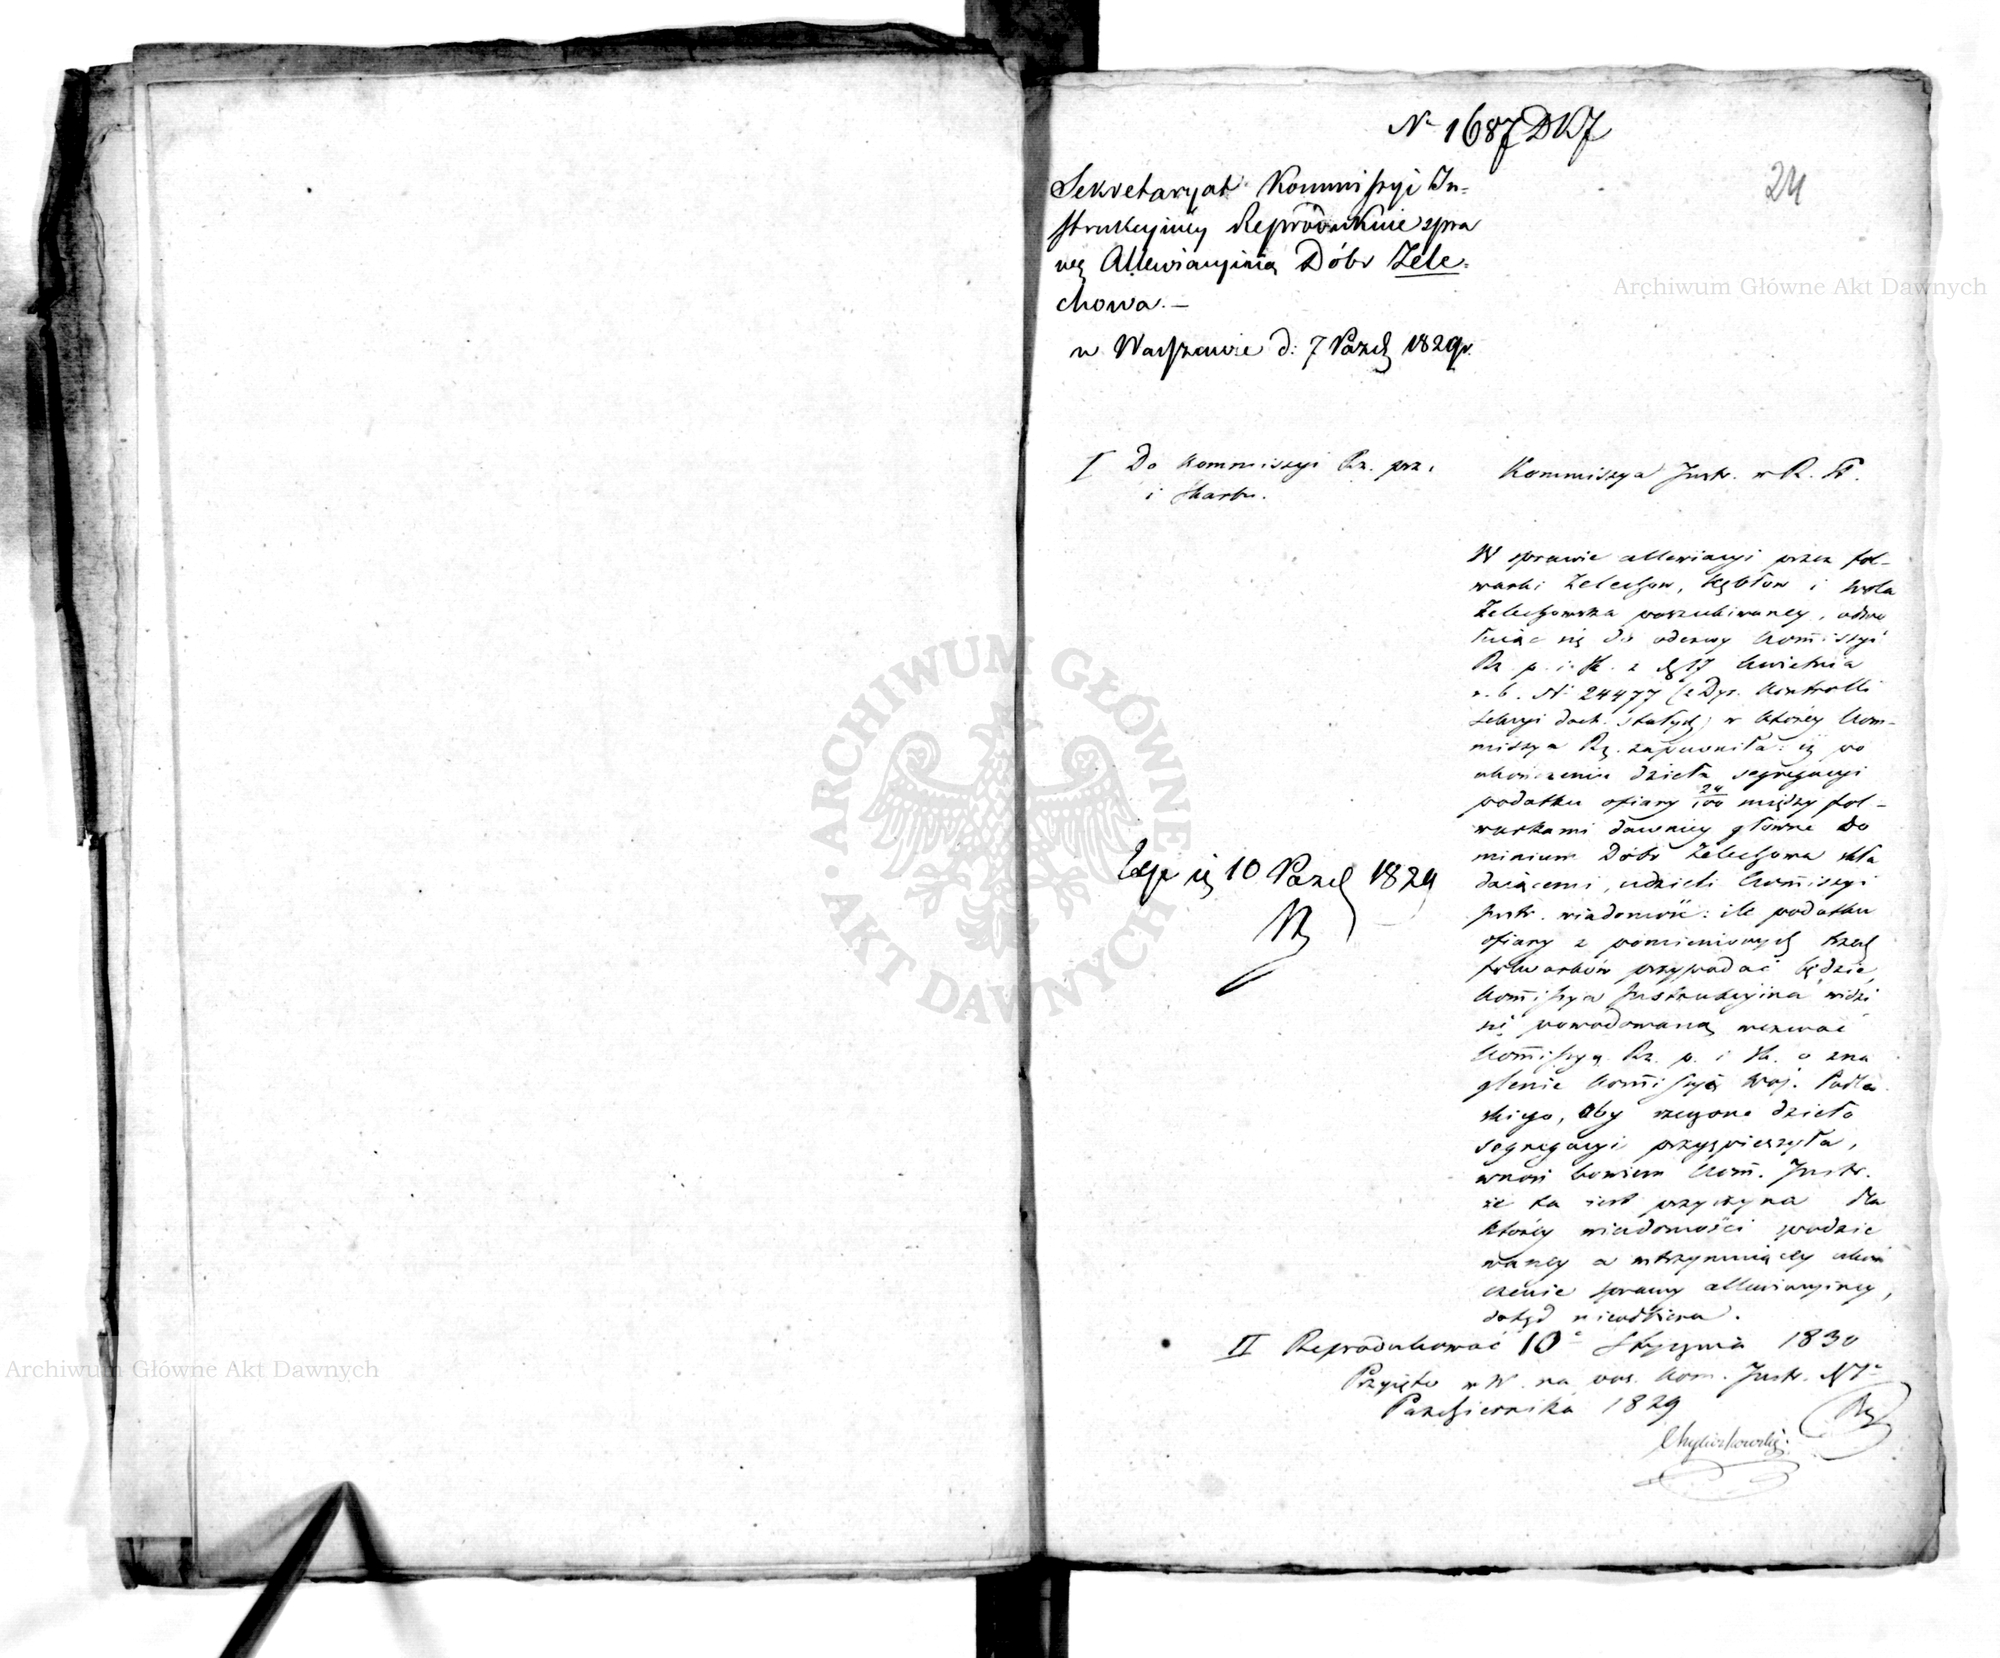 Nr 1687 DKJ
24
Sekretaryat Kommissyi In=
strukcyiney Reprodukuie spra
wę Allewiacyiną Dóbr Żele=
chowa. —
w Warszawie d: 7 Paźd 1829 r.
I Do Kommissyi Rz. prz.
i Skarbu.
Kommissya Instr. w R. St.
W sprawie allewiacyi przez fol-
warki Żelechow, Kębłow i Wola
Żelechowska poszukiwaney, odwo
łuiąc się do odezwy Kom̄issyi
Rz. p. i Sk. z d. 17 Kwietnia
r. b. Nr 24477 (z Dyr. Kontrolli
Sekcyi doch. stałych) w którey Kom-
missya Rz. zapewniła: iż po
ukończeniu dzieła segregacyi
podatku ofiary 24/100 między fol-
warkami dawniey główne Do
minium Dóbr Żelechowa skła
daiącemi, udzieli Kom̄issyi
Instr. wiadomość: ile podatku
ofiary z pomienionych trzech
folwarków przypadać będzie,
Kom̄issya Instrukcyina widzi
się powodowaną wezwać
Kom̄issyą Rz. p. i Sk. o zna
glenie Kom̄issyi Woj. Podla
skiego, aby rzeczone dzieło
segregacyi przyspieszyła,
wnosi bowiem Kom̄. Instr.
że ta iest przyczyna dla
którey wiadomości spodzie
waney a wstrzymuiącey ukoń
czenie sprawy allewiacyiney,
dotąd nieodbiera.
Exp. ię 10 Paźd 1829
II Reprodukować 10 Stycznia 1830
Przyięto w W. na pos. Kom. Instr. d 7
Października 1829
Archiwum Główne Akt Dawnych
Archiwum Główne Akt Dawnych
ARCHIWUM GŁÓWNE AKT DAWNYCH